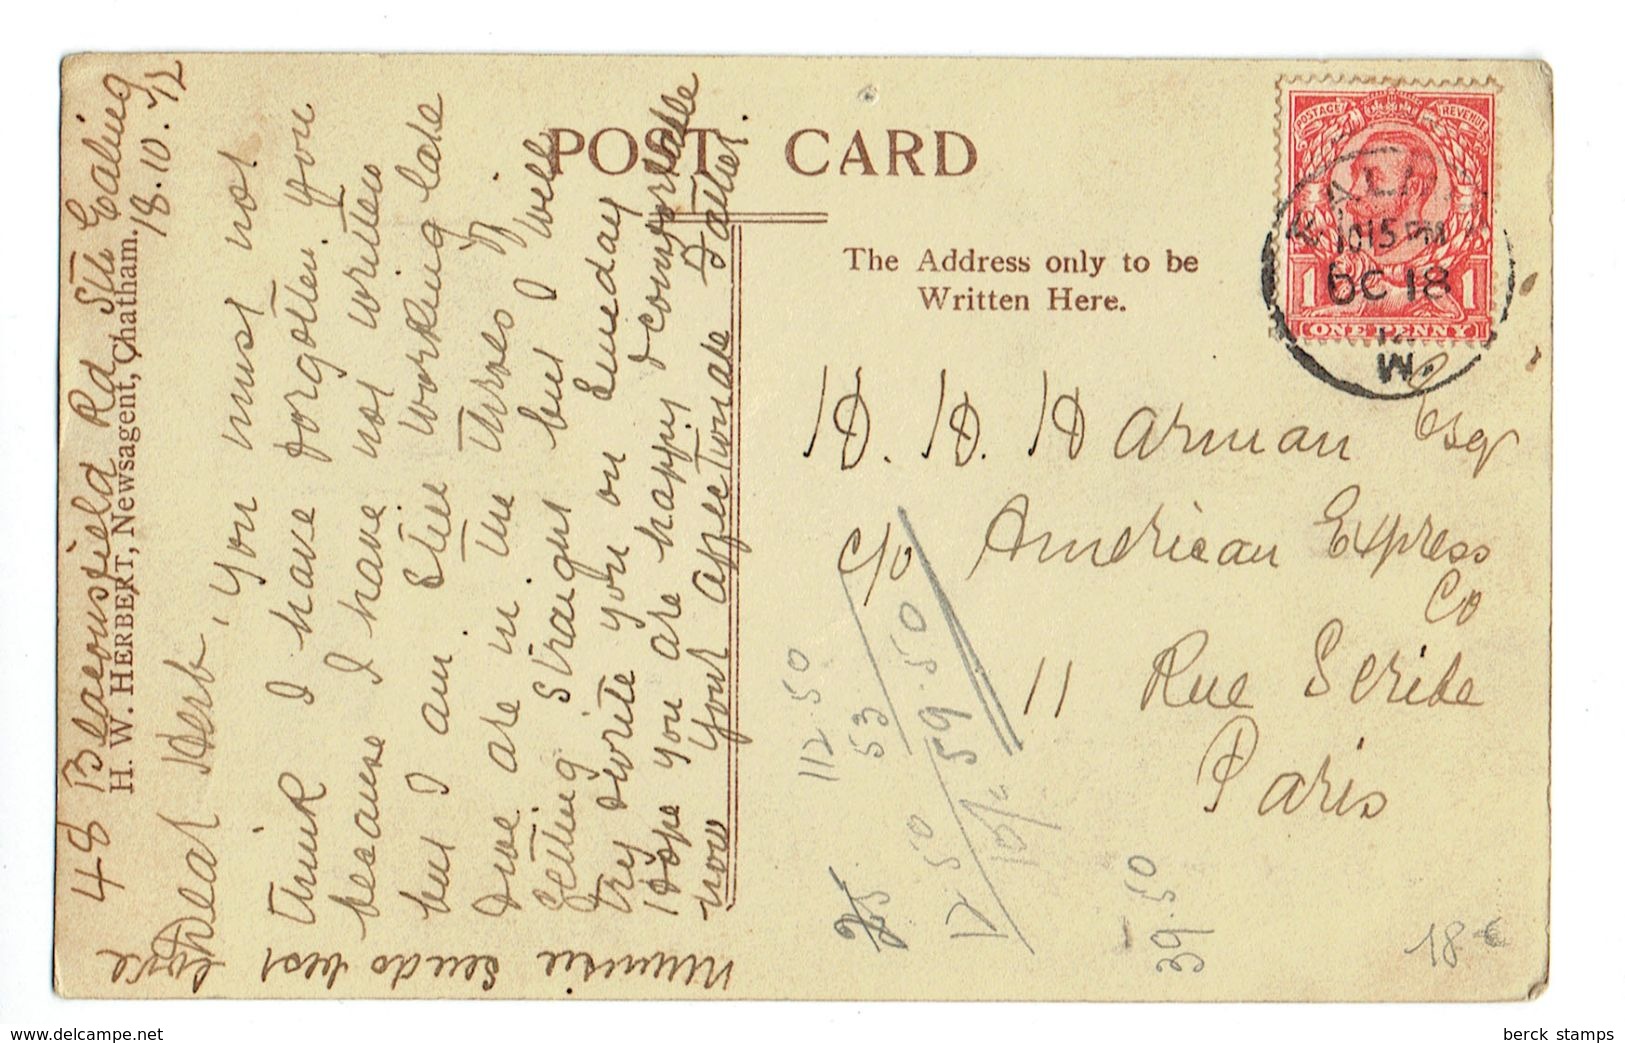 48 Beaconsfield Rd Sth Ealing
18.10.12
H. W. HERBERT, Newsagent, Chatham.
Dear Herb, you must not
think I have forgotten you
because I have not written
but I am still working late
Dive are in the throes of
getting straight but I will
try write you on Sunday
Hope you are happy & comfortable
now Your affectionate Father.
Mummie sends best love
POST CARD
The Address only to be
Written Here.
POSTAGE REVENUE
EALING
10 15 PM
OC 18
12
W.
1 ONE PENNY 1
H. H. Harman Esq
c/o American Express
Co
11 Rue Scribe
Paris
112.50
53
59.50
59
50
39.50
18 €
www.delcampe.net
berck stamps